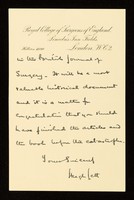 Royal College of Surgeons of England
Lincoln's Inn Fields,
London, W.C.2
in the British Journal of
Surgery. It will be a most
valuable historical document
and it is a matter for
congratulation that you should
have finished the articles and
the book before the catastrophe.
Yours sincerely
Hugh Lett